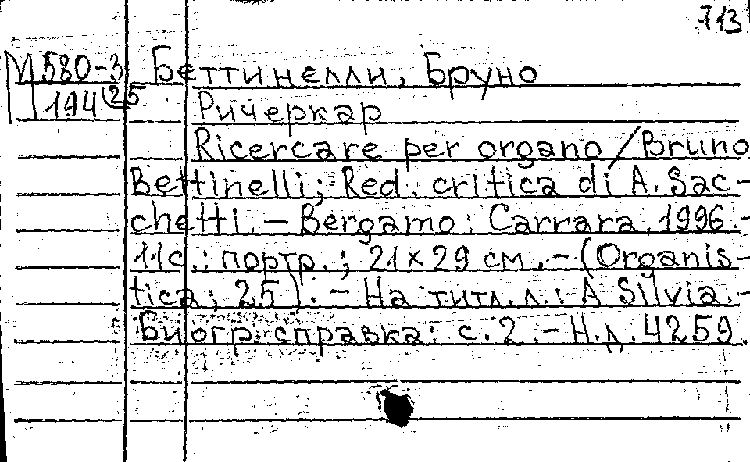 713
М580-3 Беттинелли, Бруно
194(25
Ричеркар
Ricercare per organo / Bruno
Bettinelli; Red. critica di A. Sac-
chetti. – Bergamo: Carrara, 1996. –
11с.: портр.; 21×29 см. – (Organis-
tica; 25). – На титл. л.: A Silvia. –
Биогр. справка: с. 2. – Н.д. 4259.